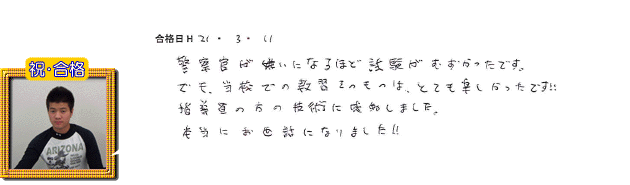 合格日H 21・3・11
祝・合格
警察官が嫌いになるほど試験がむずかったです。
でも、当校での教習そのものは、とても楽しかったです!!
指導員の方の技術に感動しました。
本当にお世話になりました!!
ARIZONA